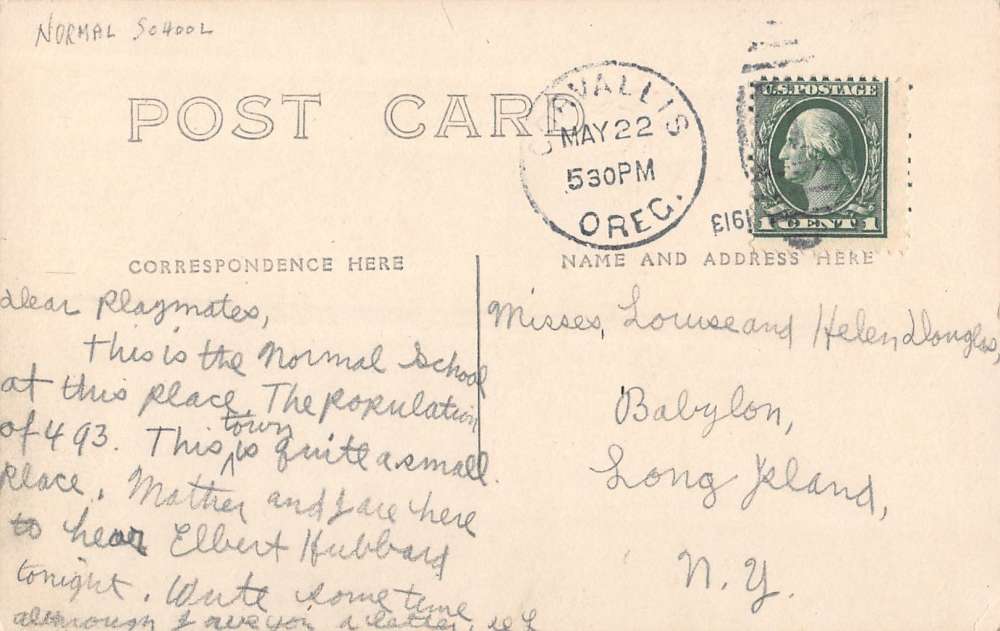 NORMAL SCHOOL
POST CARD
CORVALLIS
MAY 22
530PM
OREG.
1913
U.S. POSTAGE
1 CENT 1
CORRESPONDENCE HERE
NAME AND ADDRESS HERE
Dear Playmates,
This is the Normal School
at this place. The population
of 493. This town is quite a small
place. Mother and I are here
to hear Elbert Hubbard
tonight. Write some time
although I owe you a letter.
Misses, Louise and Helen Douglas,
Babylon,
Long Island,
N.Y.